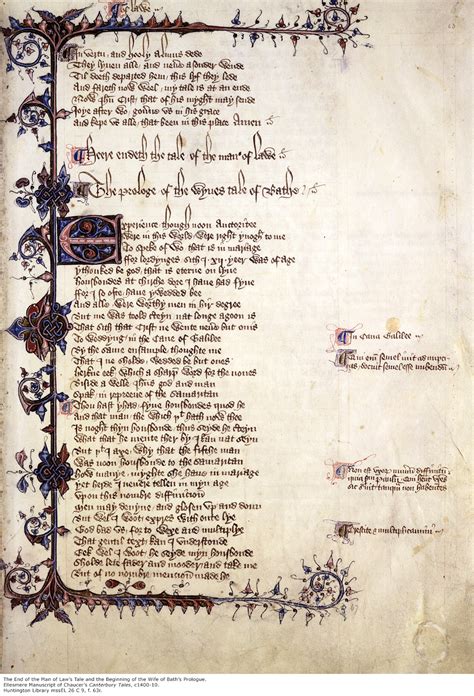 The lawe
In vertu and hooly almus dede
They lyuen alle and neuere asonder wende
Til deeth departed hem this lyf they lede
And fareth now weel my tale is at an ende
Now Ihu Crist that of his myght may sende
Ioye after wo gouerne vs in his grace
And kepe vs alle that been in this place Amen
Heere endeth the tale of the man of lawe
The prologe of the wyues tale of Bathe
Experience though noon Auctoritee
Were in this world were right ynogh to me
To speke of wo that is in mariage
ffor lordynges sith I .xij. yeer was of age
ythonked be god that is eterne on lyue
housbondes at chirche dore I haue had fyue
ffor I so ofte haue ywedded bee
And alle were worthy men in hir degree
But me was toold certeyn nat longe agoon is
That sith that Crist ne wente neuere but onis
To weddyng in the Cane of Galilee
By the same ensample thoughte me
That I ne sholde wedded be but ones
herkne eek which a sharp word for the nones
Biside a welle Ihs god and man
Spak in repreeue of the Samaritan
Thou hast yhad fyue housbondes quod he
And that man the which þt hath now thee
Is noght thyn housbonde thus seyde he certeyn
What that he mente ther by I kan nat seyn
But þt I axe why that the fifthe man
Was noon housbonde to the Samaritan
how manye myghte she haue in mariage
yet herde I neuere tellen in myn age
Vpon this nombre diffinicioun
Men may deuyne and glosen vp and doun
But wel I woot expres with oute lye
God bad vs for to wexe and multiplye
That gentil text kan I vnderstonde
Eek wel I woot he seyde myn housbonde
Sholde lete fader and mooder and take me
But of no nombre mencion made he
In Cana Galilee
Crescite & multiplicamini
The End of the Man of Law's Tale and the Beginning of the Wife of Bath's Prologue.
Ellesmere Manuscript of Chaucer's Canterbury Tales, c1400-10.
Huntington Library mssEL 26 C 9, f. 63r.